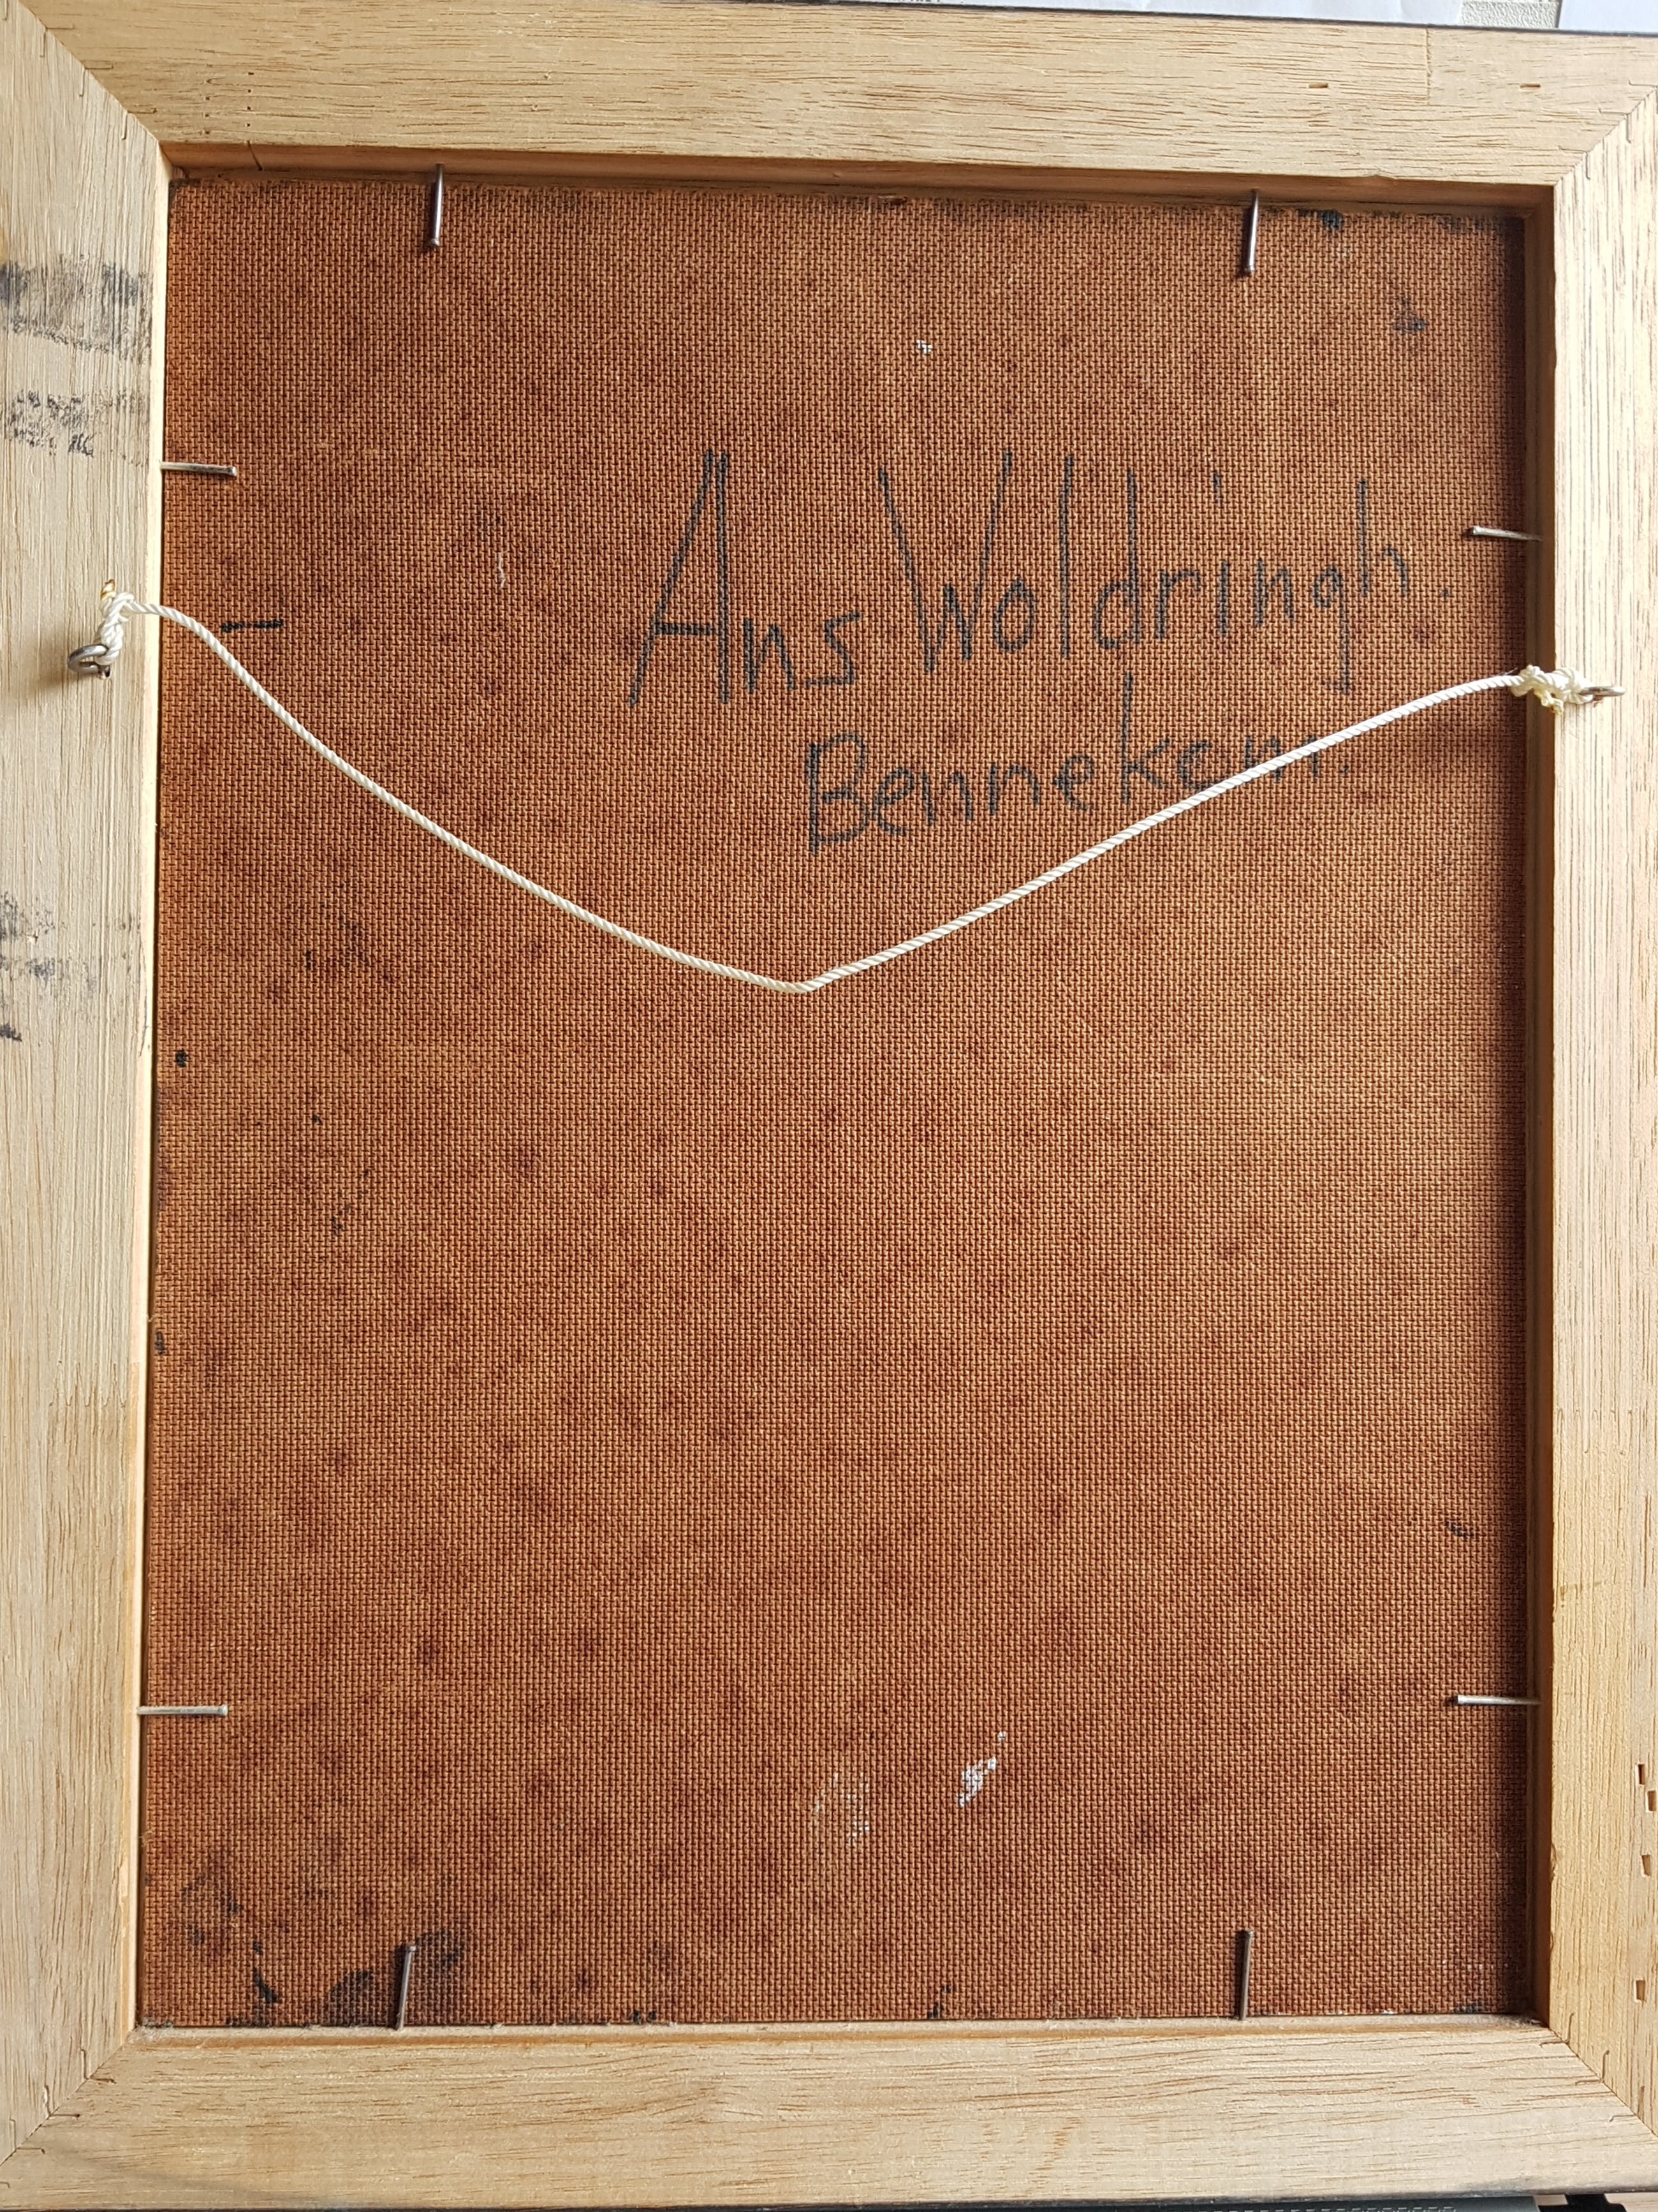 Ans Woldringh.
Bennekom.